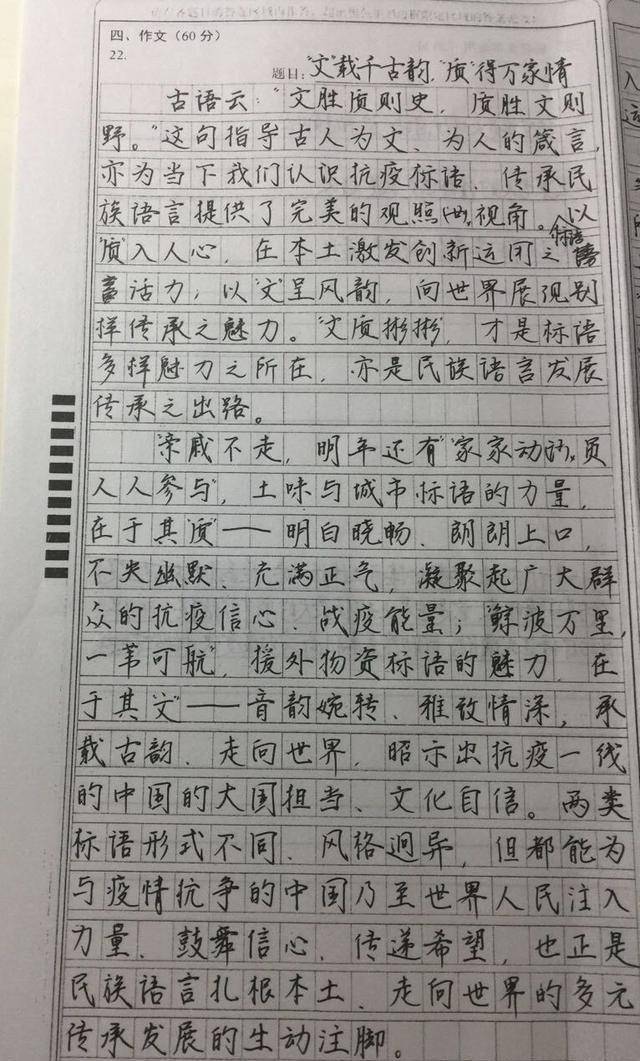 四、作文（60分）
22.
题目："文"载千古韵，"质"得万家情
古语云："文胜质则史，质胜文则
野。"这句指导古人为文、为人的箴言，
亦为当下我们认识抗疫标语、传承民
族语言提供了完美的观照视角。以
"质"入人心，在本土激发创新运用之标语
活力；以"文"呈风韵，向世界展现别
样传承之魅力。"文质彬彬"，才是标语
多样魅力之所在，亦是民族语言发展
传承之出路。
"亲戚不走，明年还有""家家动员，
人人参与"，土味与城市标语的力量，
在于其"质"——明白晓畅、朗朗上口，
不失幽默、充满正气，凝聚起广大群
众的抗疫信心、战疫能量；"鲸波万里，
一苇可航"，援外物资标语的魅力，在
于其"文"——音韵婉转、雅致情深，承
载古韵、走向世界，昭示出抗疫一线
的中国的大国担当、文化自信。两类
标语形式不同、风格迥异，但都能为
与疫情抗争的中国乃至世界人民注入
力量、鼓舞信心、传递希望，也正是
民族语言扎根本土、走向世界的多元
传承发展的生动注脚。
入